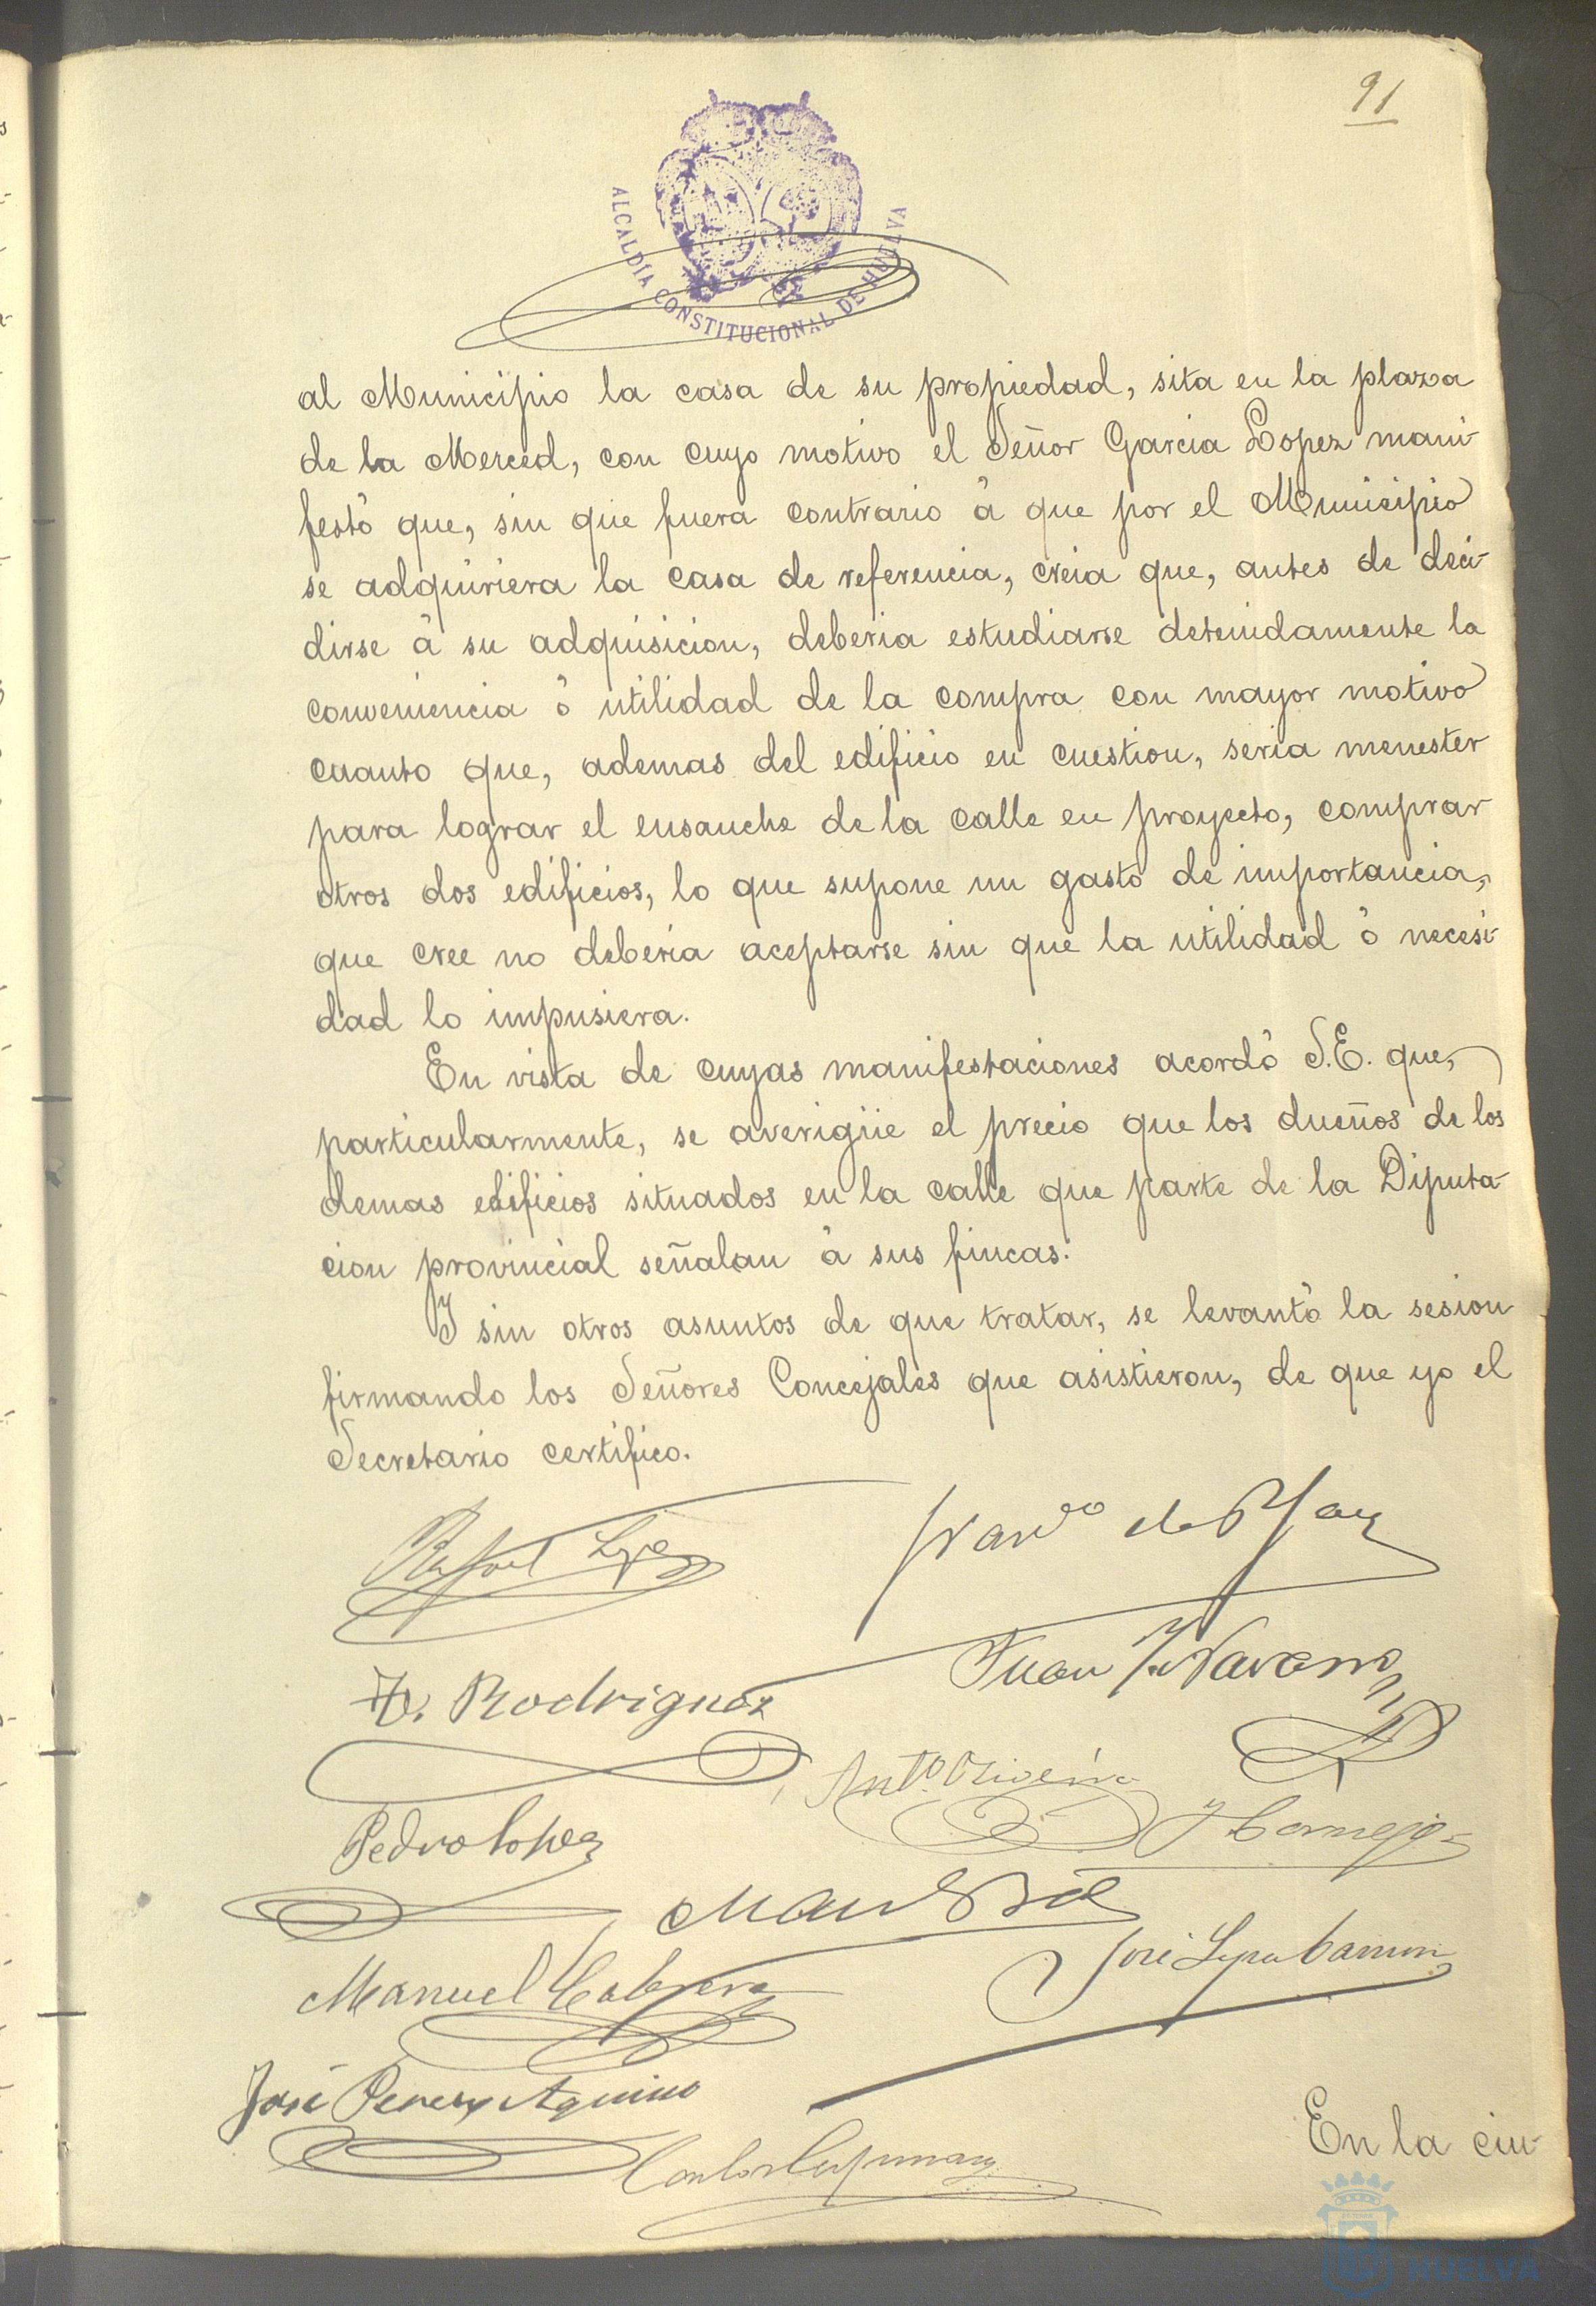 91
ALCALDÍA CONSTITUCIONAL DE HUELVA
al Municipio la casa de su propiedad, sita en la plaza
de la Merced, con cuyo motivo el Señor Garcia Lopez mani-
festó que, sin que fuera contrario á que por el Municipio
se adquiriera la casa de referencia, creia que, antes de deci-
dirse á su adquisicion, deberia estudiarse detenidamente la
conveniencia ó utilidad de la compra con mayor motivo
cuanto que, ademas del edificio en cuestion, seria menester
para lograr el ensanche de la calle en proyecto, comprar
otros dos edificios, lo que supone un gasto de importancia,
que cree no deberia aceptarse sin que la utilidad ó necesi-
dad lo impusiera.
En vista de cuyas manifestaciones acordó S.E. que,
particularmente, se averigüe el precio que los dueños de los
demas edificios situados en la calle que parte de la Diputa-
cion provincial señalan á sus fincas.
Y sin otros asuntos de que tratar, se levantó la sesion
firmando los Señores Concejales que asistieron, de que yo el
Secretario certifico.
Rafael Lopez
Juan Navarro
Rodriguez
Pedro Lopez
Manuel Cabrera
José Perez Aquino
En la ciu-
HUELVA